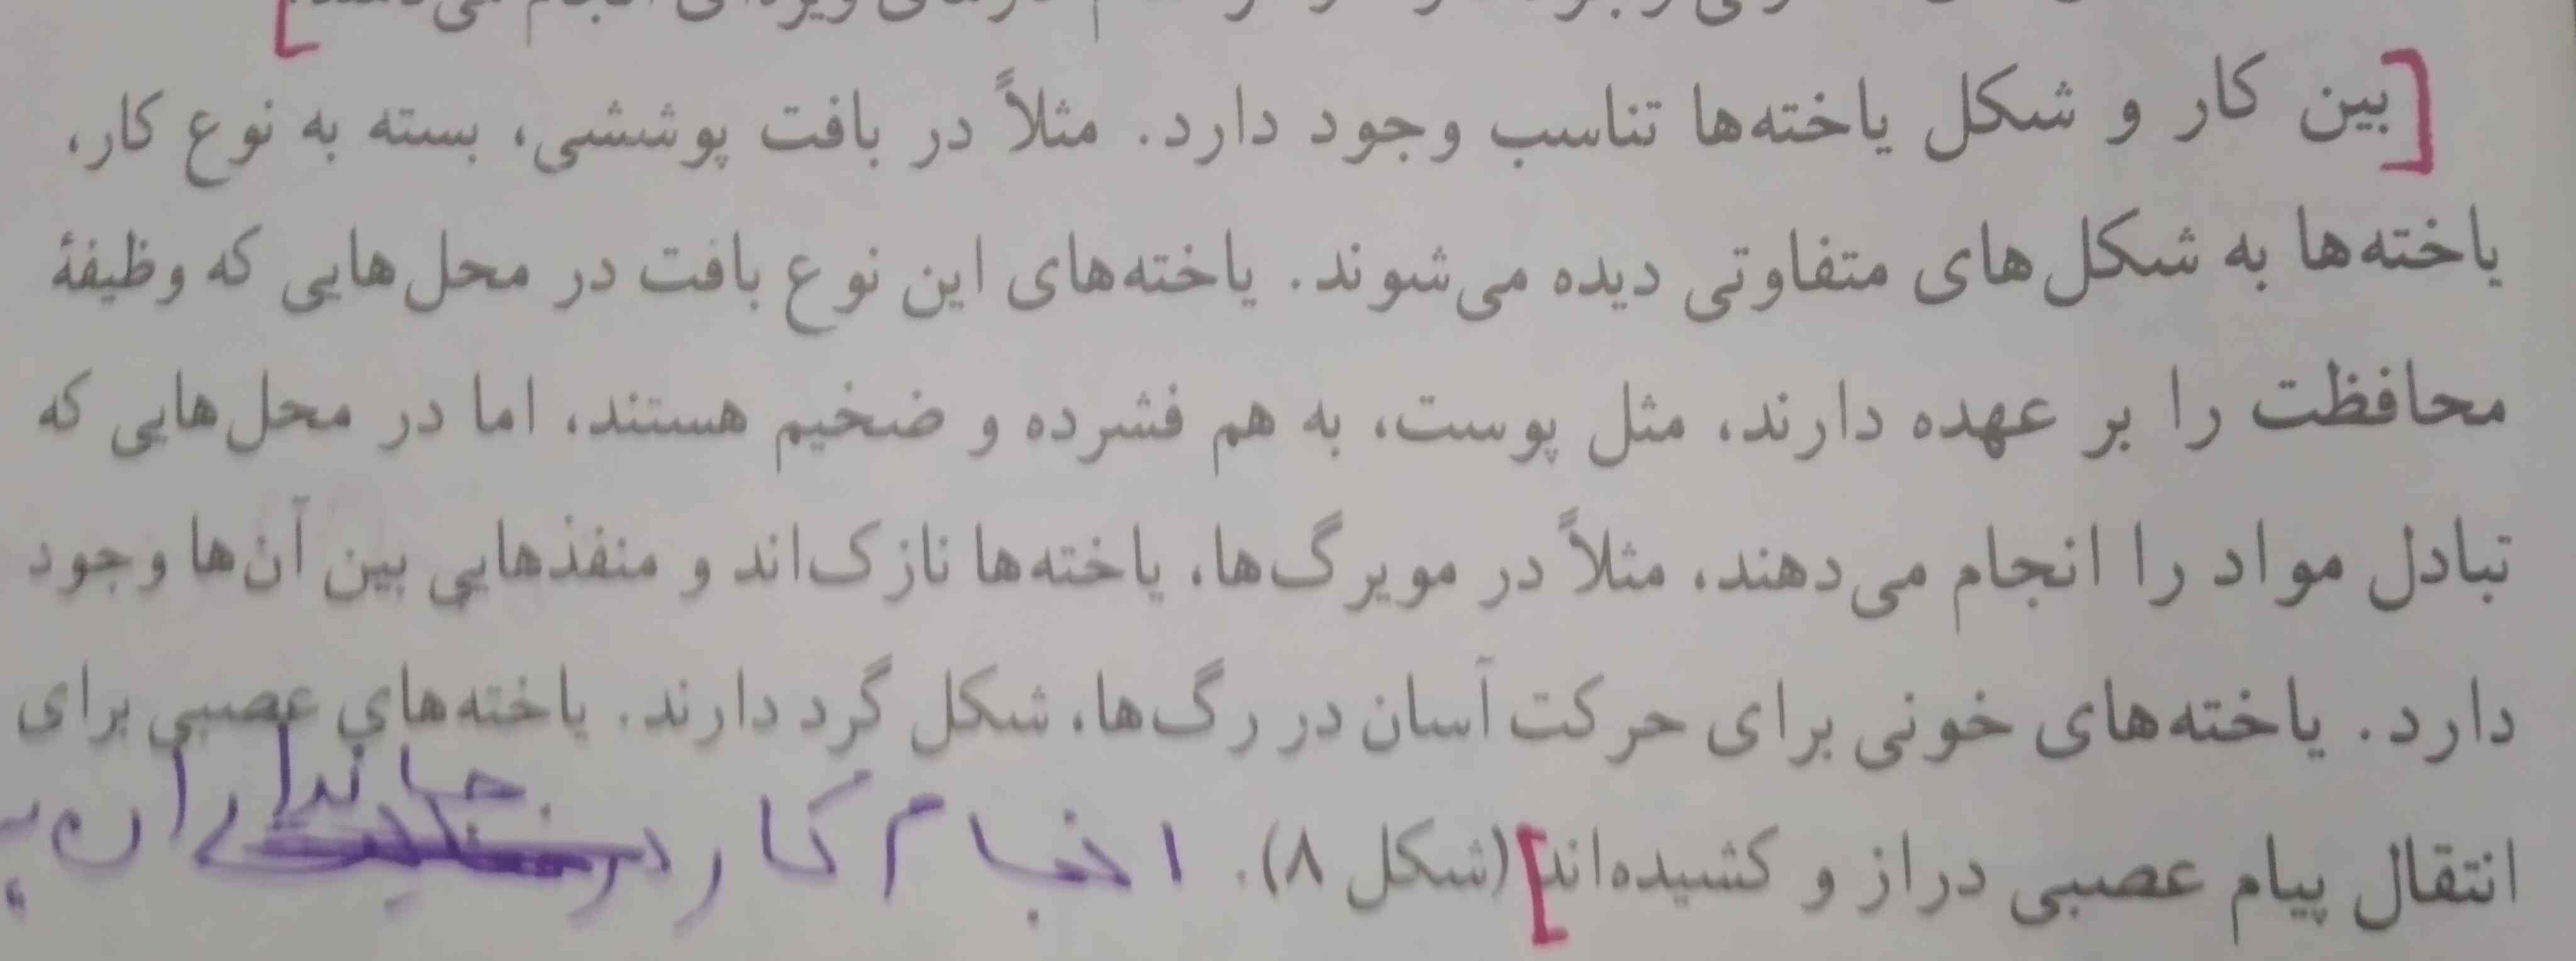 [بین کار و شکل یاخته‌ها تناسب وجود دارد. مثلاً در بافت پوششی، بسته به نوع کار،
یاخته‌ها به شکل‌های متفاوتی دیده می‌شوند. یاخته‌های این نوع بافت در محل‌هایی که وظیفهٔ
محافظت را بر عهده دارند، مثل پوست، به هم فشرده و ضخیم هستند، اما در محل‌هایی که
تبادل مواد را انجام می‌دهند، مثلاً در مویرگ‌ها، یاخته‌ها نازک‌اند و منفذهایی بین آن‌ها وجود
دارد. یاخته‌های خونی برای حرکت آسان در رگ‌ها، شکل گرد دارند. یاخته‌های عصبی برای
انتقال پیام عصبی دراز و کشیده‌اند] (شکل ۸). انجام کار در